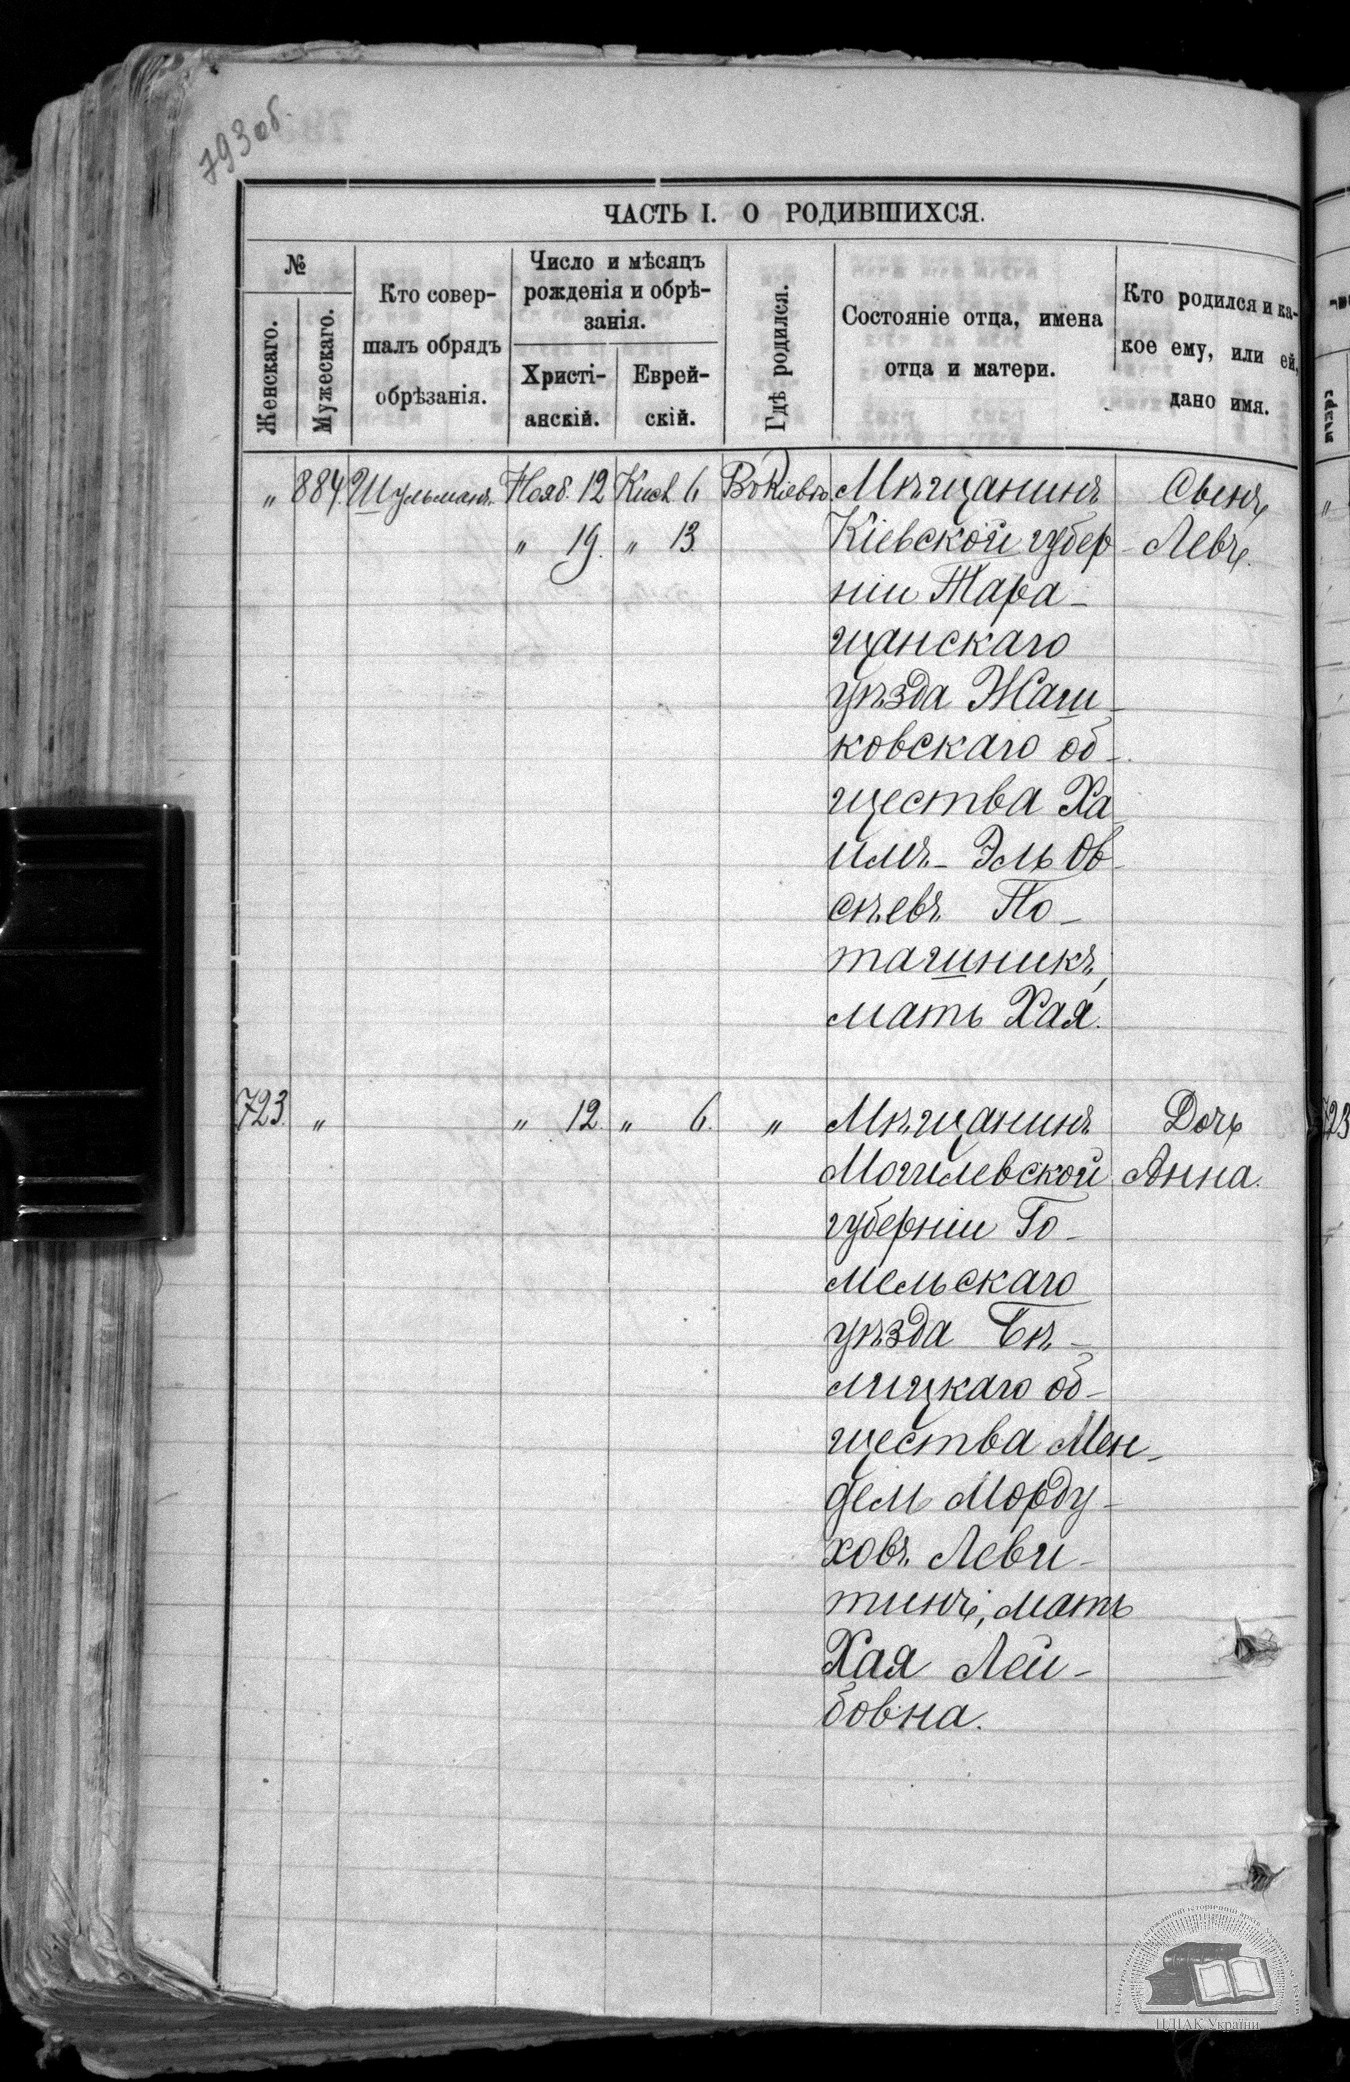 793 об.
ЧАСТЬ I. О РОДИВШИХСЯ.
№
Женскаго.
Мужескаго.
Кто совер-
шалъ обрядъ
обрѣзанія.
Число и мѣсяцъ
рожденія и обрѣ-
занія.
Христі-
анскій.
Еврей-
скій.
Гдѣ родился.
Состояніе отца, имена
отца и матери.
Кто родился и ка-
кое ему, или ей,
дано имя.
„ 884. Шульманъ. Нояб. 12 Кисл. 6 Въ Кіевѣ. Мѣщанинъ Сынъ
„ 19. „ 13. Кіевской губер- Левъ.
ніи Тара-
щанскаго
уѣзда Жаш-
ковскаго об-
щества Ха
имъ-Эль Ов-
сѣевъ По-
ташникъ,
мать Хая.
723. „ „ 12. „ 6. „ Мѣщанинъ Дочь
Могилевской Анна.
губерніи Го-
мельскаго
уѣзда Бѣ-
лицкаго об-
щества Мен-
дель Морду-
ховъ Леви-
тинъ, мать
Хая Лей-
бовна.
723
ЦДІАК України